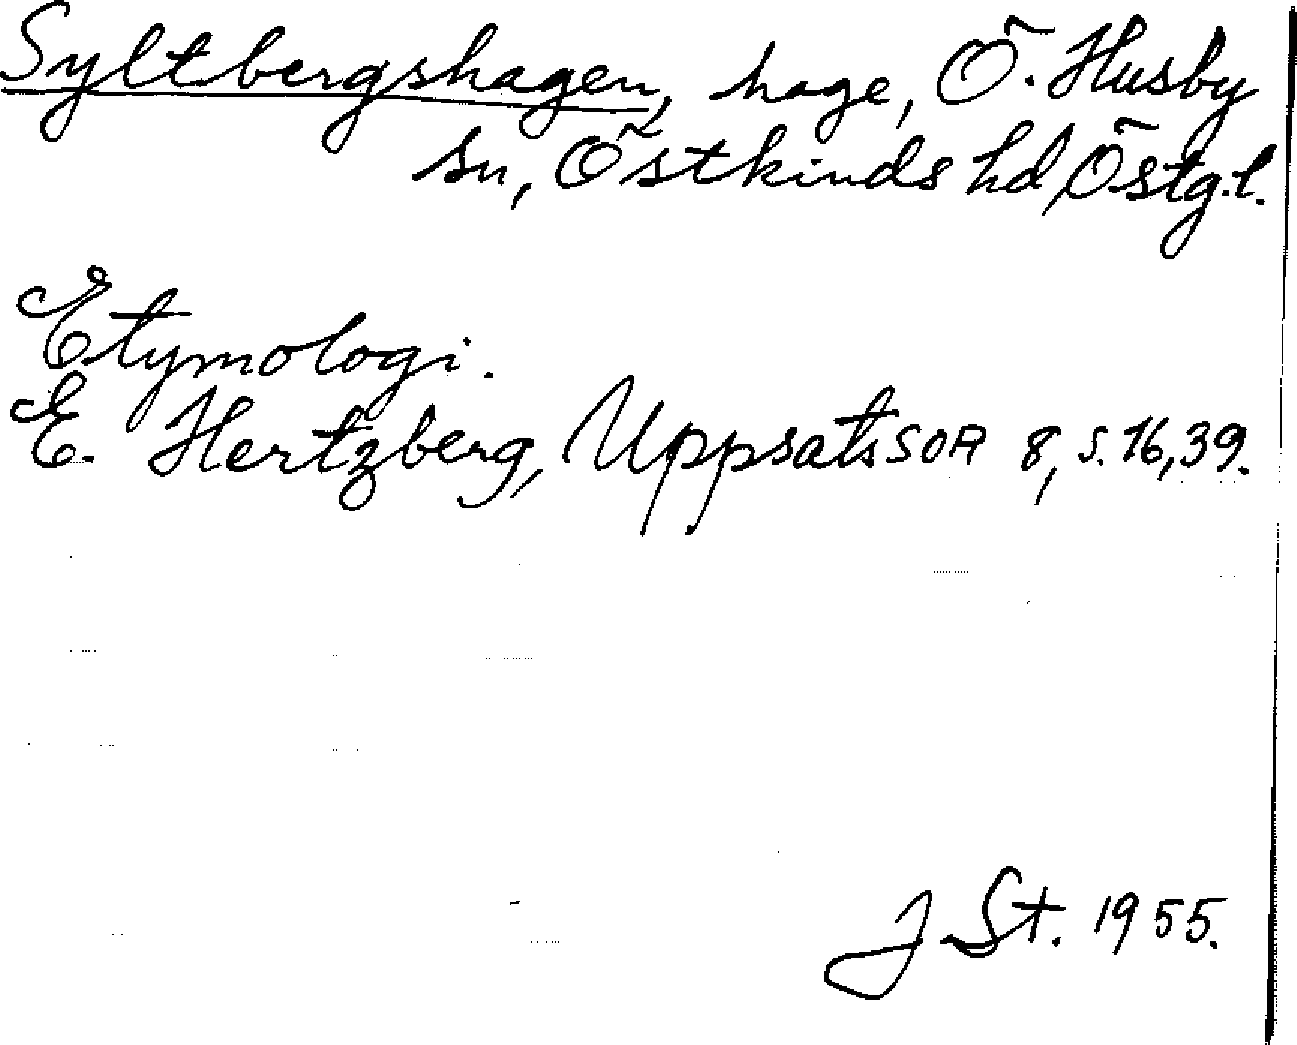 Syltbergshagen, hage, Ö. Husby
sn, Östkinds hd, Östg.l.
Etymologi.
E. Hertzberg, Uppsats SOA 8, s. 16, 39.
J St. 1955.